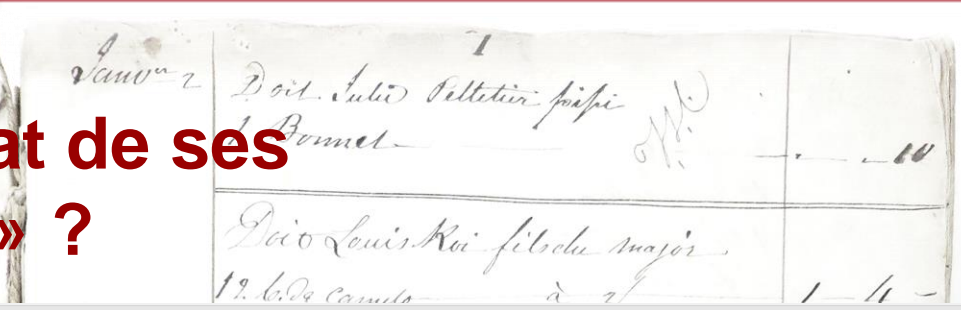 1
Janvr 2
Doit Julie Pelletier
1 Bonnet 10
at de ses
» ?
Doit Louis Roi fils du major
à 1 4